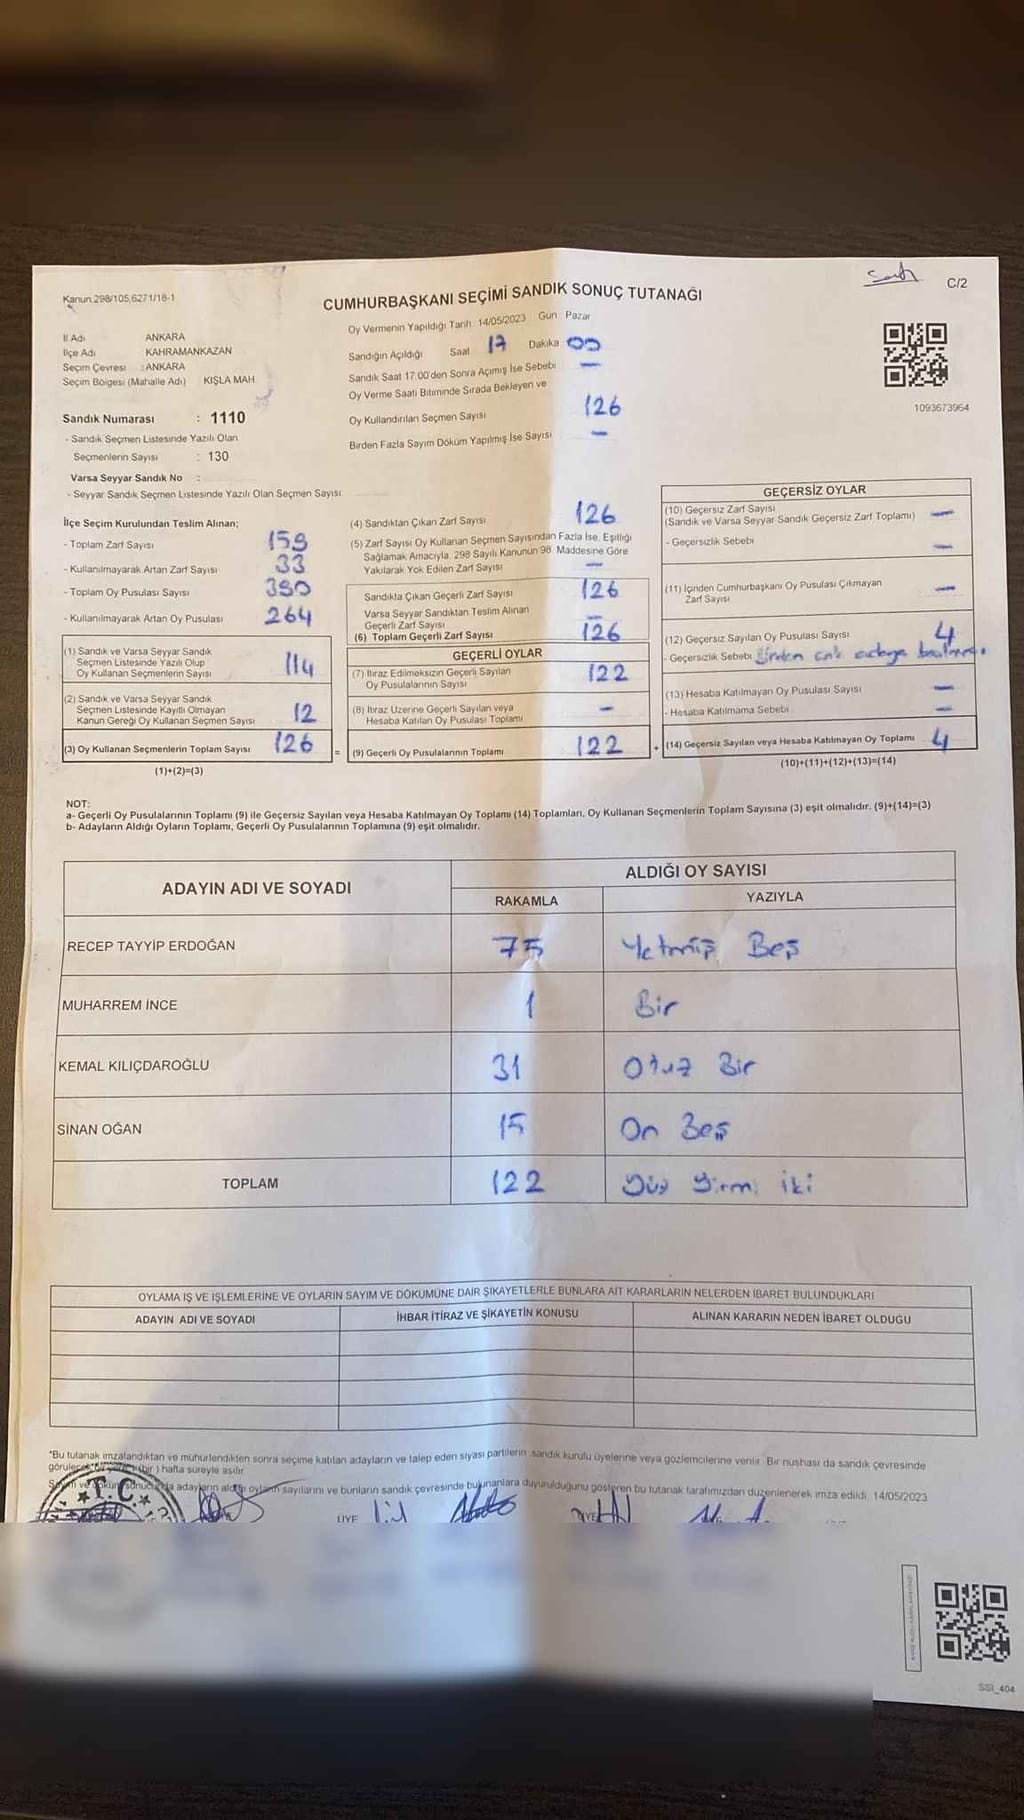 Kanun 298/105,6271/18-1
CUMHURBAŞKANI SEÇİMİ SANDIK SONUÇ TUTANAĞI
C/2
İl Adı ANKARA
İlçe Adı KAHRAMANKAZAN
Seçim Çevresi : ANKARA
Seçim Bölgesi (Mahalle Adı) KIŞLA MAH.
Sandık Numarası : 1110
- Sandık Seçmen Listesinde Yazılı Olan
Seçmenlerin Sayısı : 130
Varsa Seyyar Sandık No :
- Seyyar Sandık Seçmen Listesinde Yazılı Olan Seçmen Sayısı
Oy Vermenin Yapıldığı Tarih: 14/05/2023 Gün: Pazar
Sandığın Açıldığı Saat 17 Dakika 00
Sandık Saat 17:00'den Sonra Açılmış İse Sebebi —
Oy Verme Saati Bitiminde Sırada Bekleyen ve
Oy Kullandırılan Seçmen Sayısı 126
Birden Fazla Sayım Döküm Yapılmış İse Sayısı —
1093673964
İlçe Seçim Kurulundan Teslim Alınan;
- Toplam Zarf Sayısı 159
- Kullanılmayarak Artan Zarf Sayısı 33
- Toplam Oy Pusulası Sayısı 390
- Kullanılmayarak Artan Oy Pusulası 264
(1) Sandık ve Varsa Seyyar Sandık
Seçmen Listesinde Yazılı Olup
Oy Kullanan Seçmenlerin Sayısı 114
(2) Sandık ve Varsa Seyyar Sandık
Seçmen Listesinde Kayıtlı Olmayan
Kanun Gereği Oy Kullanan Seçmen Sayısı 12
(3) Oy Kullanan Seçmenlerin Toplam Sayısı 126
(1)+(2)=(3)
(4) Sandıktan Çıkan Zarf Sayısı 126
(5) Zarf Sayısı Oy Kullanan Seçmen Sayısından Fazla İse, Eşitliği
Sağlamak Amacıyla, 298 Sayılı Kanunun 98. Maddesine Göre
Yakılarak Yok Edilen Zarf Sayısı —
Sandıkta Çıkan Geçerli Zarf Sayısı 126
Varsa Seyyar Sandıktan Teslim Alınan
Geçerli Zarf Sayısı —
(6) Toplam Geçerli Zarf Sayısı 126
GEÇERLİ OYLAR
(7) İtiraz Edilmeksizin Geçerli Sayılan
Oy Pusulalarının Sayısı 122
(8) İtiraz Üzerine Geçerli Sayılan veya
Hesaba Katılan Oy Pusulası Toplamı —
= (9) Geçerli Oy Pusulalarının Toplamı 122
GEÇERSİZ OYLAR
(10) Geçersiz Zarf Sayısı
(Sandık ve Varsa Seyyar Sandık Geçersiz Zarf Toplamı) —
- Geçersizlik Sebebi —
(11) İçinden Cumhurbaşkanı Oy Pusulası Çıkmayan
Zarf Sayısı —
(12) Geçersiz Sayılan Oy Pusulası Sayısı 4
- Geçersizlik Sebebi Birden çok adaya
(13) Hesaba Katılmayan Oy Pusulası Sayısı —
- Hesaba Katılmama Sebebi —
+ (14) Geçersiz Sayılan veya Hesaba Katılmayan Oy Toplamı 4
(10)+(11)+(12)+(13)=(14)
NOT:
a- Geçerli Oy Pusulalarının Toplamı (9) ile Geçersiz Sayılan veya Hesaba Katılmayan Oy Toplamı (14) Toplamları, Oy Kullanan Seçmenlerin Toplam Sayısına (3) eşit olmalıdır. (9)+(14)=(3)
b- Adayların Aldığı Oyların Toplamı, Geçerli Oy Pusulalarının Toplamına (9) eşit olmalıdır.
ADAYIN ADI VE SOYADI ALDIĞI OY SAYISI
RAKAMLA YAZIYLA
RECEP TAYYİP ERDOĞAN 75 Yetmiş Beş
MUHARREM İNCE 1 Bir
KEMAL KILIÇDAROĞLU 31 Otuz Bir
SİNAN OĞAN 15 On Beş
TOPLAM 122 Yüz Yirmi iki
OYLAMA İŞ VE İŞLEMLERİNE VE OYLARIN SAYIM VE DÖKÜMÜNE DAİR ŞİKAYETLERLE BUNLARA AİT KARARLARIN NELERDEN İBARET BULUNDUKLARI
ADAYIN ADI VE SOYADI İHBAR İTİRAZ VE ŞİKAYETİN KONUSU ALINAN KARARIN NEDEN İBARET OLDUĞU
*Bu tutanak imzalandıktan ve mühürlendikten sonra seçime katılan adayların ve talep eden siyasi partilerin sandık kurulu üyelerine veya gözlemcilerine verilir. Bir nüshası da sandık çevresinde
(bir) hafta süreyle asılır.
adayların aldığı oyların sayılarını ve bunların sandık çevresinde bulunanlara duyurulduğunu gösteren bu tutanak tarafımızdan düzenlenerek imza edildi. 14/05/2023
T.C.
ÜYE
SSI_404